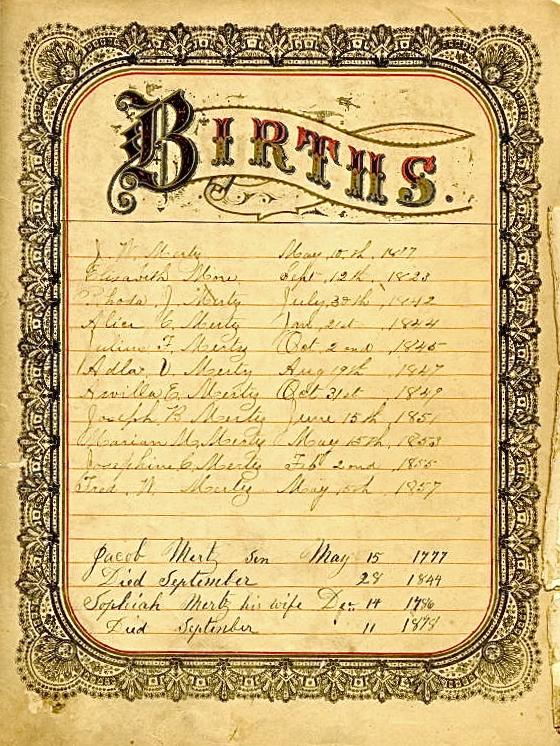 BIRTHS.
J. W. Merty May 10th,
Elisabeth More Sept 12th, 1823
Rhoda J. Merty July 30th, 1842
Alice C. Merty Jan, 21st, 1844
Julius F. Merty Oct 2nd, 1845
Adla V Merty Aug 19th, 1847
Awilla E. Merty Oct 31st 1849
Joseph B Merty June 15th, 1851
Marian M. Merty May 15th, 1853
Josephine C. Merty Feb 2nd, 1855
Fred, N. Merty May, 15th, 1857
Jacob Mertz Sen May 15 1777
Died September 28 1844
Sophiah Mertz his wife Dec. 14 1786
Died September 11 1878